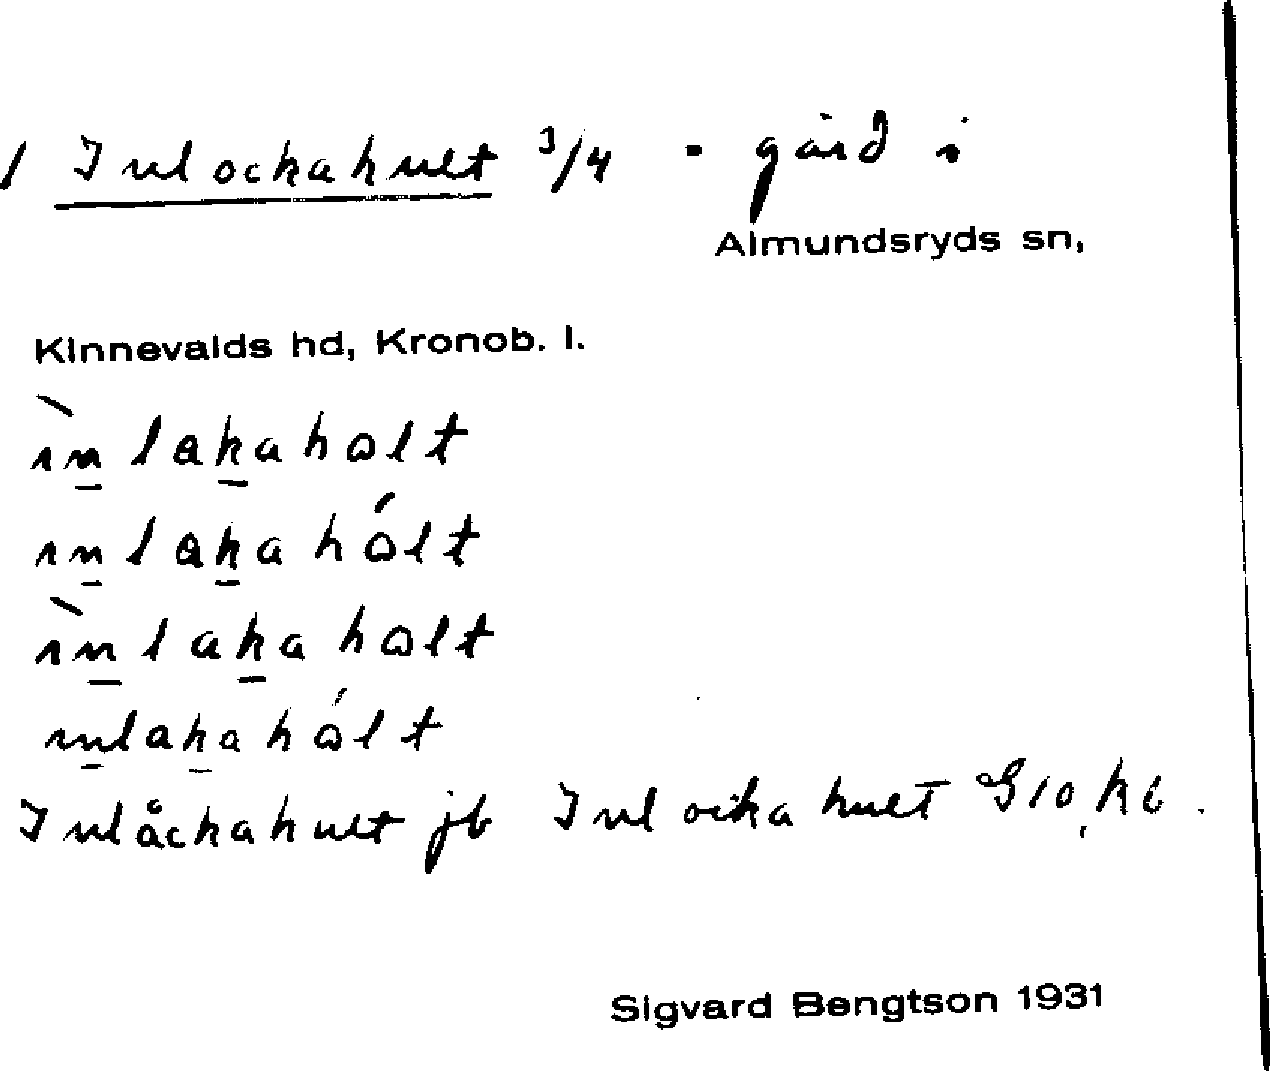 1 Inlockahult 3/4 - gård i
Almundsryds sn,
Kinnevalds hd, Kronob. l.
ìn̲lak̲ahɷlt
in̲lak̲ahɷ́lt
ìn̲lak̲ahɷlt
in̲lak̲ahɷ́lt
Inlåckahult jb Inlockahult G10, kb.
Sigvard Bengtson 1931